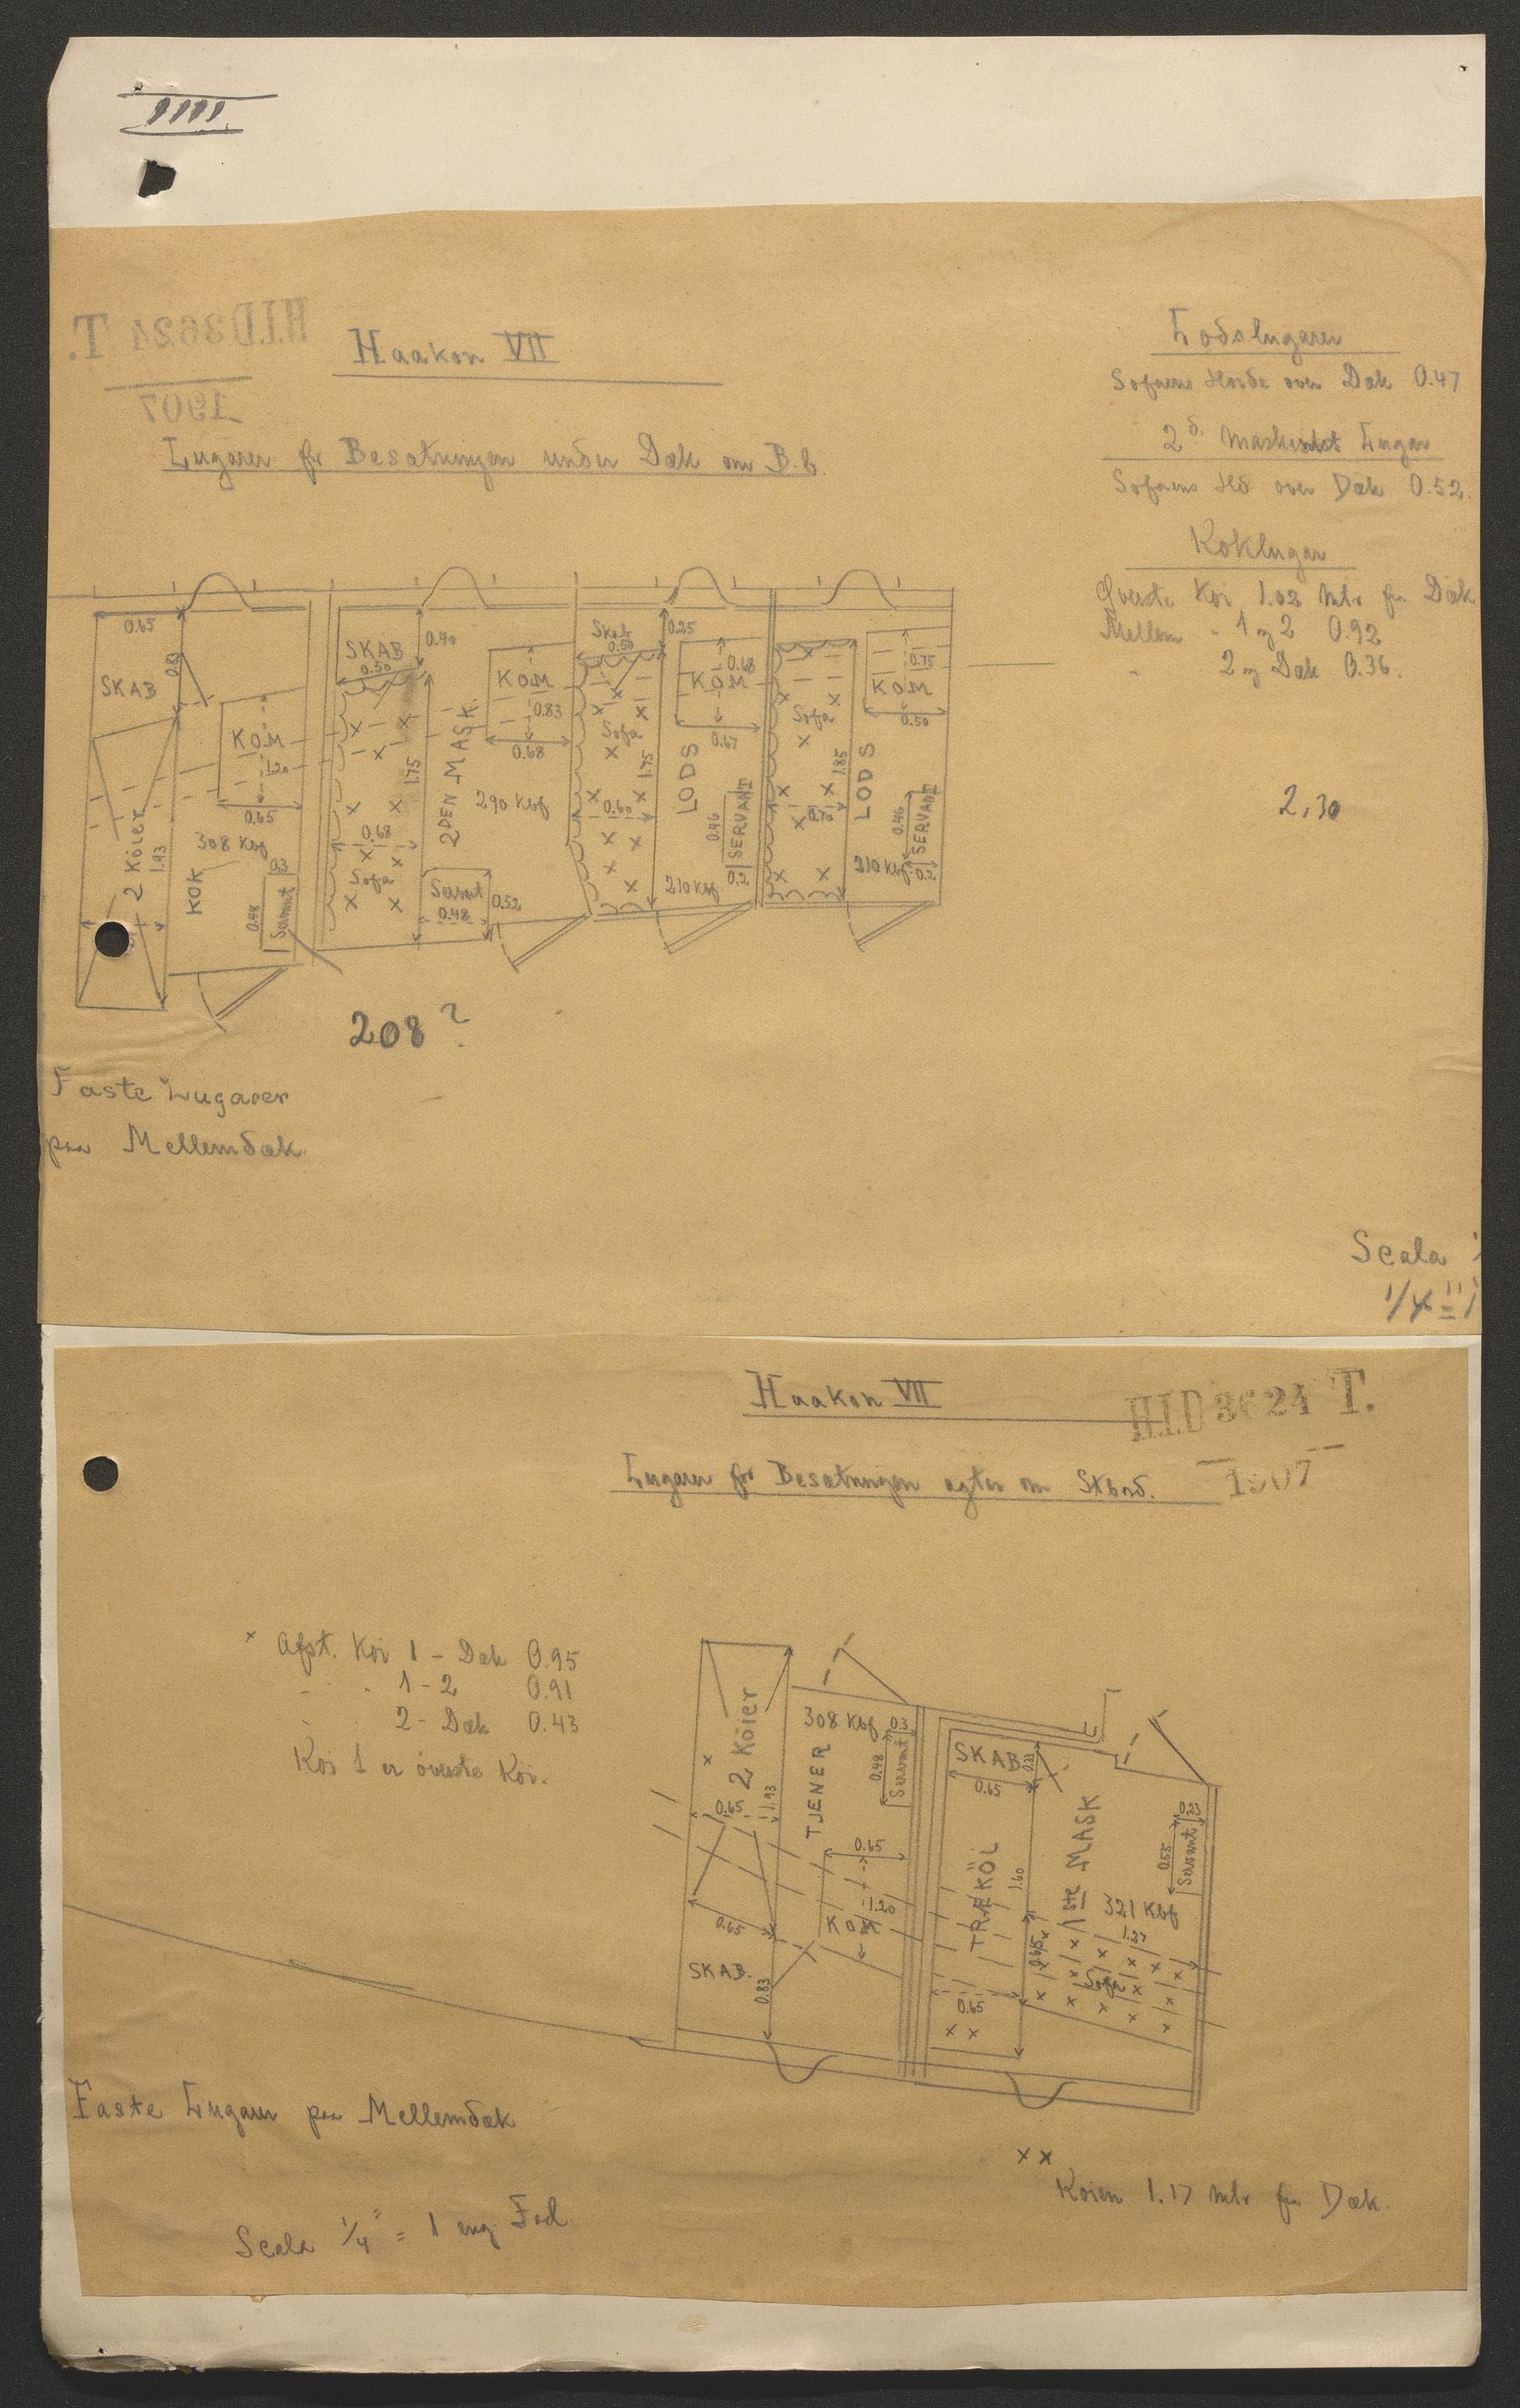 IIII
H.I.D 3624 T.
1907
Haakon VII
Lugarer for Besætningen under Dæk om B.b.
Lodslugarer
Sofaens Høide over Dæk 0.47
2d. Maskinist Lugar
Sofaens Hd over Dæk 0.52.
Koklugar
Øverste Køi 1.02 Mtr fra Dæk
Mellem " 1 og 2 0.92
" 2 og Dæk 0.36.
2,30
0.65
SKAB
0.83
2 Köier
1.93
KOM
1.20
0.65
308 Kbf
KOK
0.3
0.48
Servant
SKAB
0.50
0.40
1.75
0.68
Sofa
2DEN MASK.
KOM
0.83
0.68
290 Kbf
Servant
0.48
0.52
Skab
0.50
0.25
Sofa
1.75
0.60
LODS
KOM
0.68
0.67
0.46
SERVANT
0.2
210 Kbf
Sofa
1.85
0.70
LODS
KOM
0.75
0.50
0.46
SERVANT
0.2
210 Kbf
208?
Faste Lugarer
paa Mellemdæk
Scala
1/4" = 1
Haakon VII
H.I.D 3624 T.
1907
Lugarer for Besætningen agter om Stbord.
x Afst. Køi 1 - Dæk 0.95
- " 1 - 2 0.91
" 2 - Dæk 0.43
Køi 1 er øverste Køi.
x
2 Köier
0.65
1.93
0.65
SKAB.
0.83
308 Kbf
TJENER
0.3
0.48
Servant
0.65
1.20
KOM
SKAB
0.33
0.65
TRÆKÖI
1.60
0.65
0.65
x x
1ste MASK
0.23
0.55
Servant
321 Kbf
1.27
Sofa
Faste Lugarer paa Mellemdæk
Scala 1/4" = 1 eng. Fod.
x x
Køien 1.17 Mtr fra Dæk.